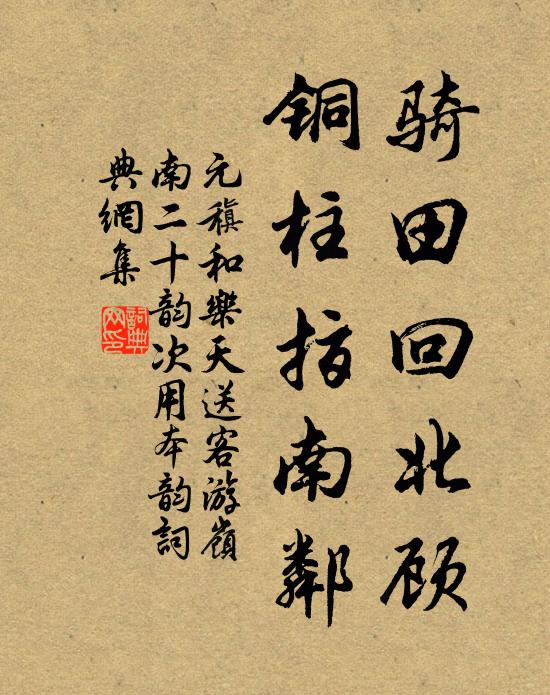 骑田回北顾
铜柱指南鄰
元稹和樂天送客游嶺
南二十韵次用本韵詞
典網集
詞典
网印